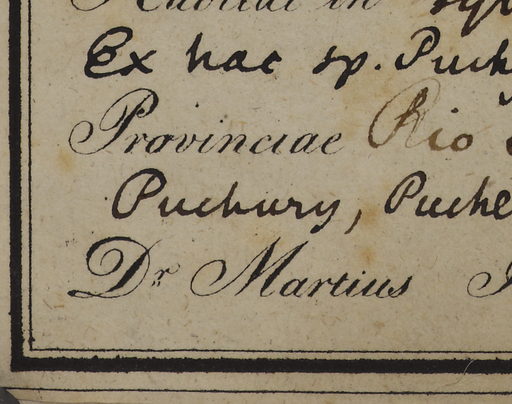 Habitat in
Ex hac sp. Puch
Provinciae Rio
Puchury, Puche
Dr. Martius